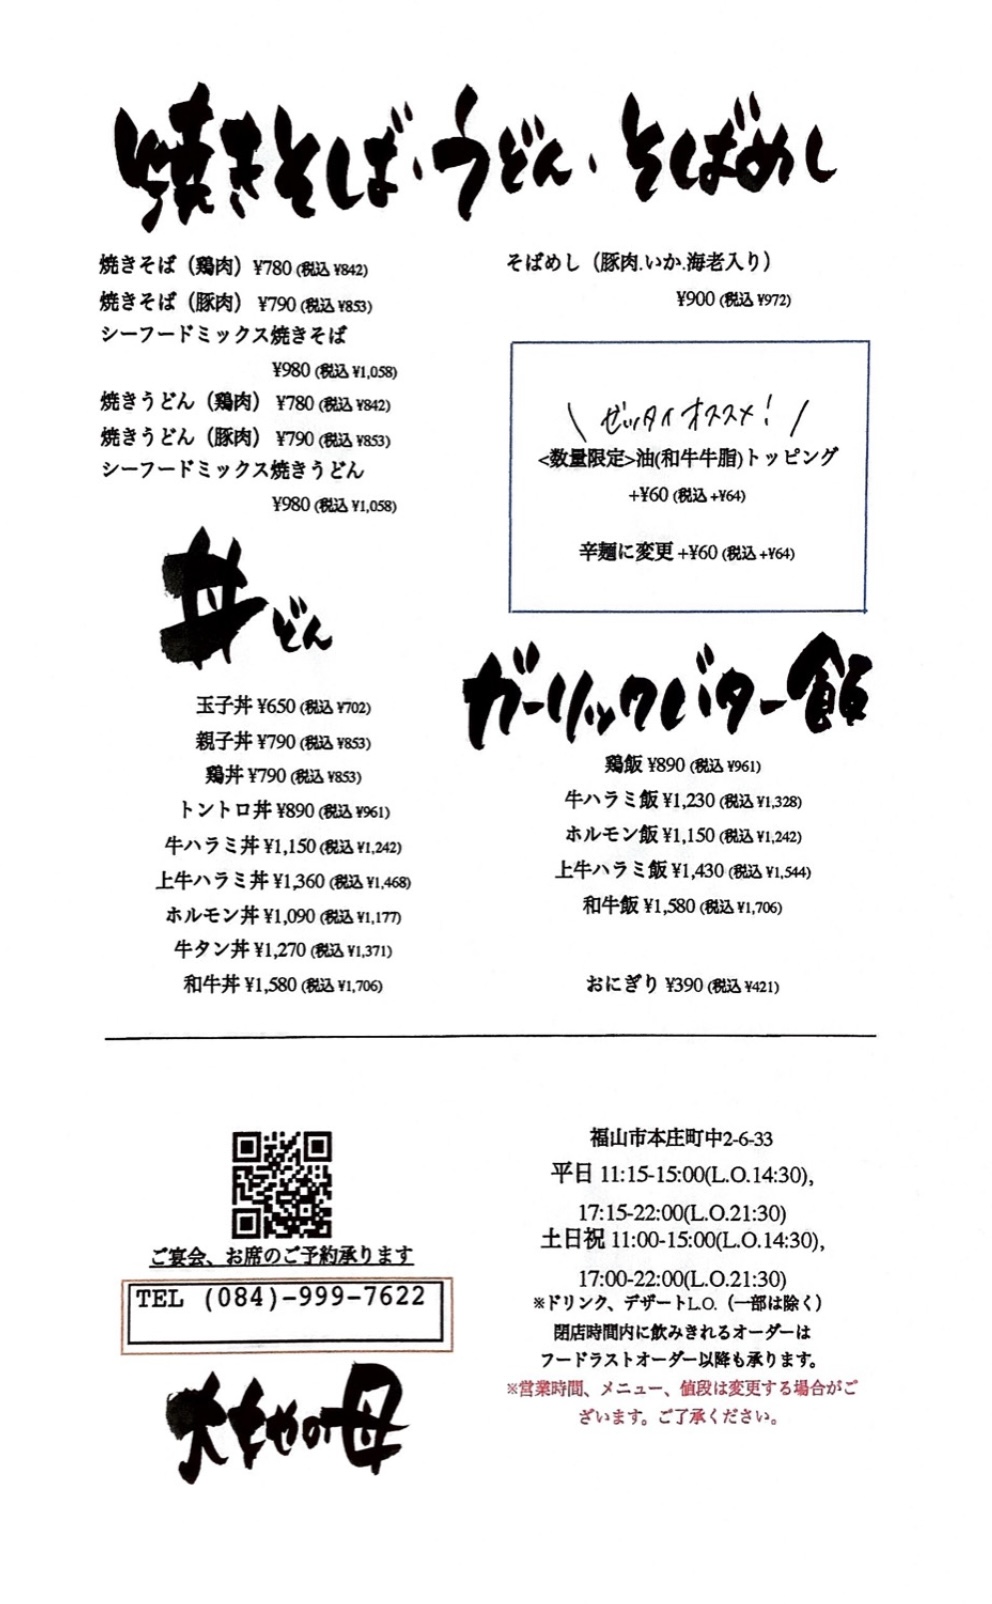 焼きそば・うどん・そばめし
焼きそば（鶏肉）¥780 (税込 ¥842)
焼きそば（豚肉） ¥790 (税込 ¥853)
シーフードミックス焼きそば
¥980 (税込 ¥1,058)
焼きうどん（鶏肉） ¥780 (税込 ¥842)
焼きうどん（豚肉） ¥790 (税込 ¥853)
シーフードミックス焼きうどん
¥980 (税込 ¥1,058)
そばめし（豚肉.いか.海老入り）
¥900 (税込 ¥972)
\ ゼッタイオススメ！ /
<数量限定>油(和牛牛脂)トッピング
+¥60 (税込 +¥64)
辛麺に変更 +¥60 (税込 +¥64)
丼どん
玉子丼 ¥650 (税込 ¥702)
親子丼 ¥790 (税込 ¥853)
鶏丼 ¥790 (税込 ¥853)
トントロ丼 ¥890 (税込 ¥961)
牛ハラミ丼 ¥1,150 (税込 ¥1,242)
上牛ハラミ丼 ¥1,360 (税込 ¥1,468)
ホルモン丼 ¥1,090 (税込 ¥1,177)
牛タン丼 ¥1,270 (税込 ¥1,371)
和牛丼 ¥1,580 (税込 ¥1,706)
ガーリックバター飯
鶏飯 ¥890 (税込 ¥961)
牛ハラミ飯 ¥1,230 (税込 ¥1,328)
ホルモン飯 ¥1,150 (税込 ¥1,242)
上牛ハラミ飯 ¥1,430 (税込 ¥1,544)
和牛飯 ¥1,580 (税込 ¥1,706)
おにぎり ¥390 (税込 ¥421)
ご宴会、お席のご予約承ります
TEL (084)-999-7622
の母
福山市本庄町中2-6-33
平日 11:15-15:00(L.O.14:30),
17:15-22:00(L.O.21:30)
土日祝 11:00-15:00(L.O.14:30),
17:00-22:00(L.O.21:30)
※ドリンク、デザートL.O.（一部は除く）
閉店時間内に飲みきれるオーダーは
フードラストオーダー以降も承ります。
※営業時間、メニュー、値段は変更する場合がご
ざいます。ご了承ください。